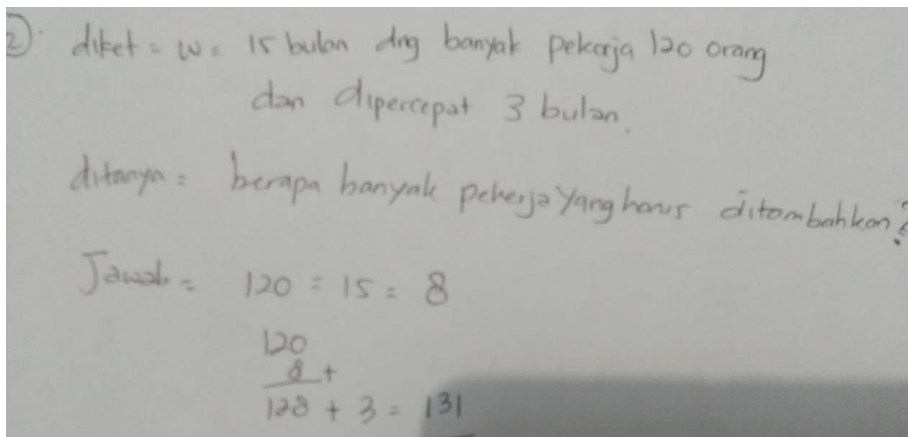 2). diket = W = 15 bulan dng banyak pekerja 120 orang
dan dipercepat 3 bulan.
ditanya = berapa banyak pekerja yang harus ditambahkan?
Jawab = 120 : 15 = 8
120
8 +
128 + 3 = 131